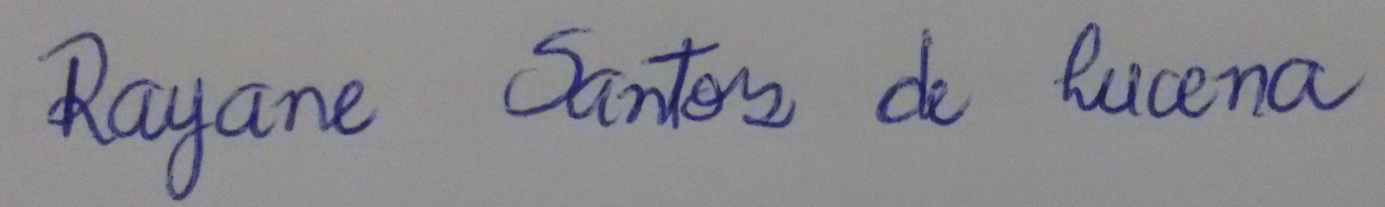 Rayane Santos de Lucena